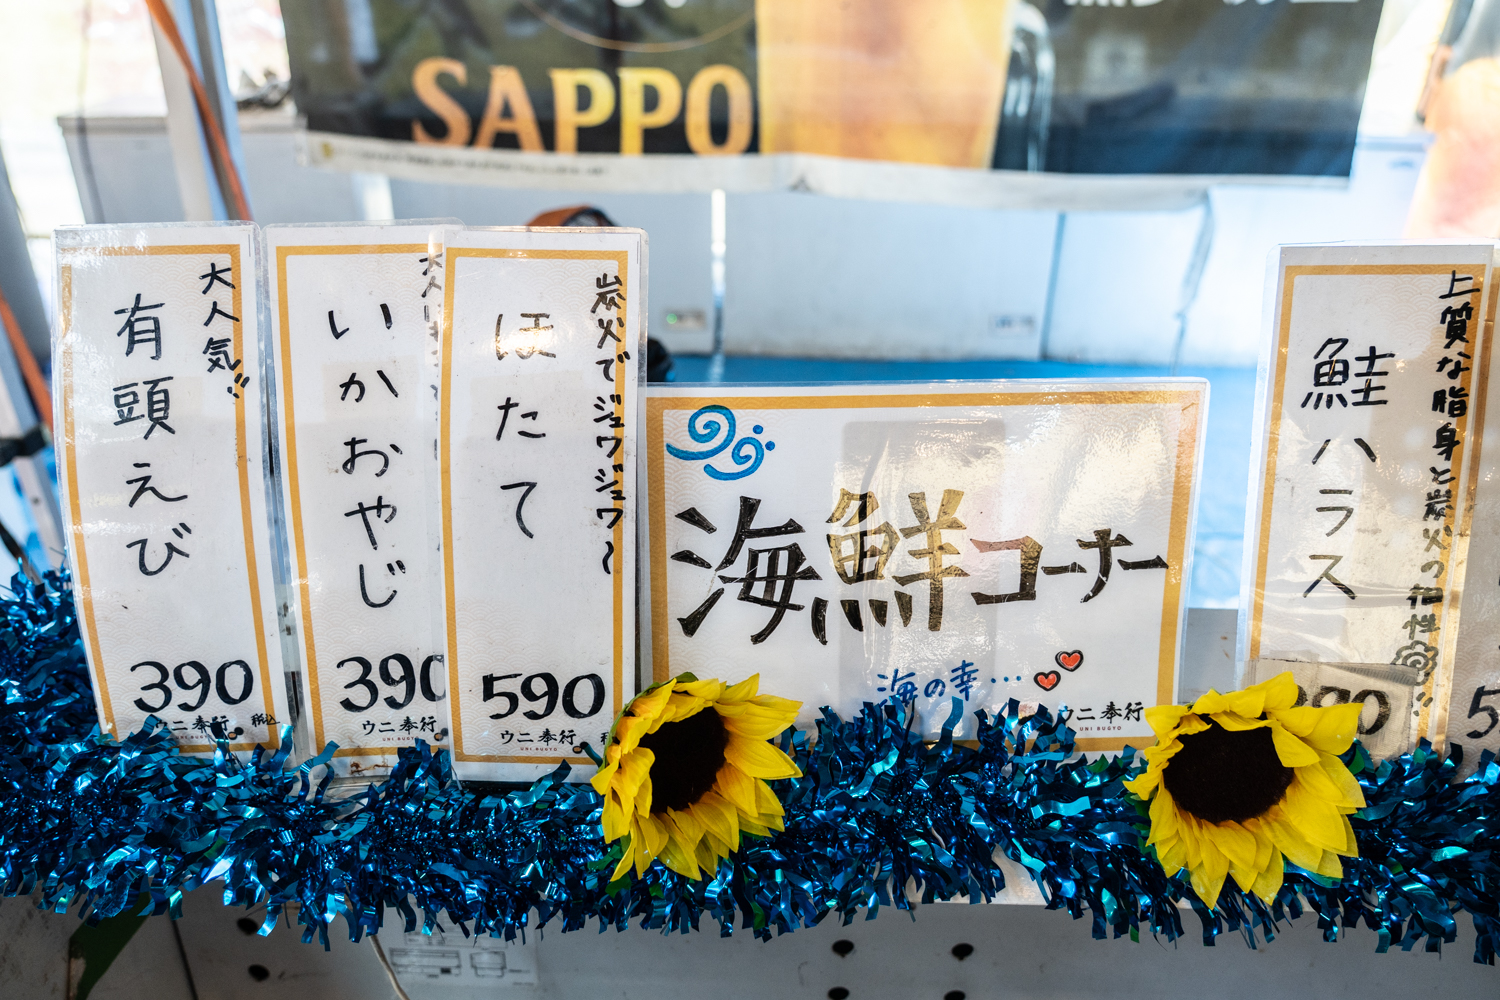 SAPPO
大人気!!
有頭えび
390
ウニ奉行
UNI BUGYO
税込
いかおやじ
390
ウニ奉行
炭火でジュワジュワ〜
ほたて
590
ウニ奉行
UNI BUGYO
海鮮コーナー
海の幸…
ウニ奉行
UNI BUGYO
上質な脂身と炭火の相性
鮭ハラス
90
5